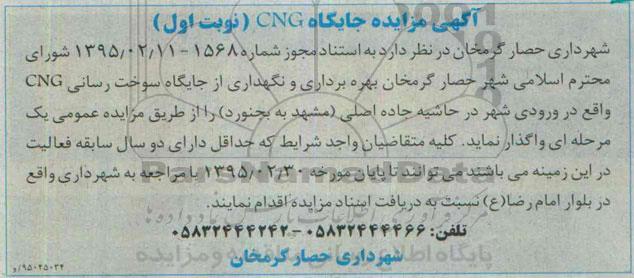 آگهی مزایده جایگاه CNG (نوبت اول)
شهرداری حصار گرمخان در نظر دارد به استناد مجوز شماره ۱۵۶۸-۱۳۹۵/۰۲/۱۱ شورای
محترم اسلامی شهر حصار گرمخان بهره برداری و نگهداری از جایگاه سوخت رسانی CNG
واقع در ورودی شهر در حاشیه جاده اصلی (مشهد به بجنورد) را از طریق مزایده عمومی یک
مرحله ای واگذار نماید. کلیه متقاضیان واجد شرایط که حداقل دارای دو سال سابقه فعالیت
در این زمینه می باشند می توانند تا پایان مورخه ۱۳۹۵/۰۲/۳۰ با مراجعه به شهرداری واقع
در بلوار امام رضا(ع) نسبت به دریافت اسناد مزایده اقدام نمایند.
تلفن: ۰۵۸۳۲۴۴۴۴۶۶-۰۵۸۳۲۴۴۴۲۴۲
شهرداری حصار گرمخان
۹۵۰۲۵۰۳۴/و